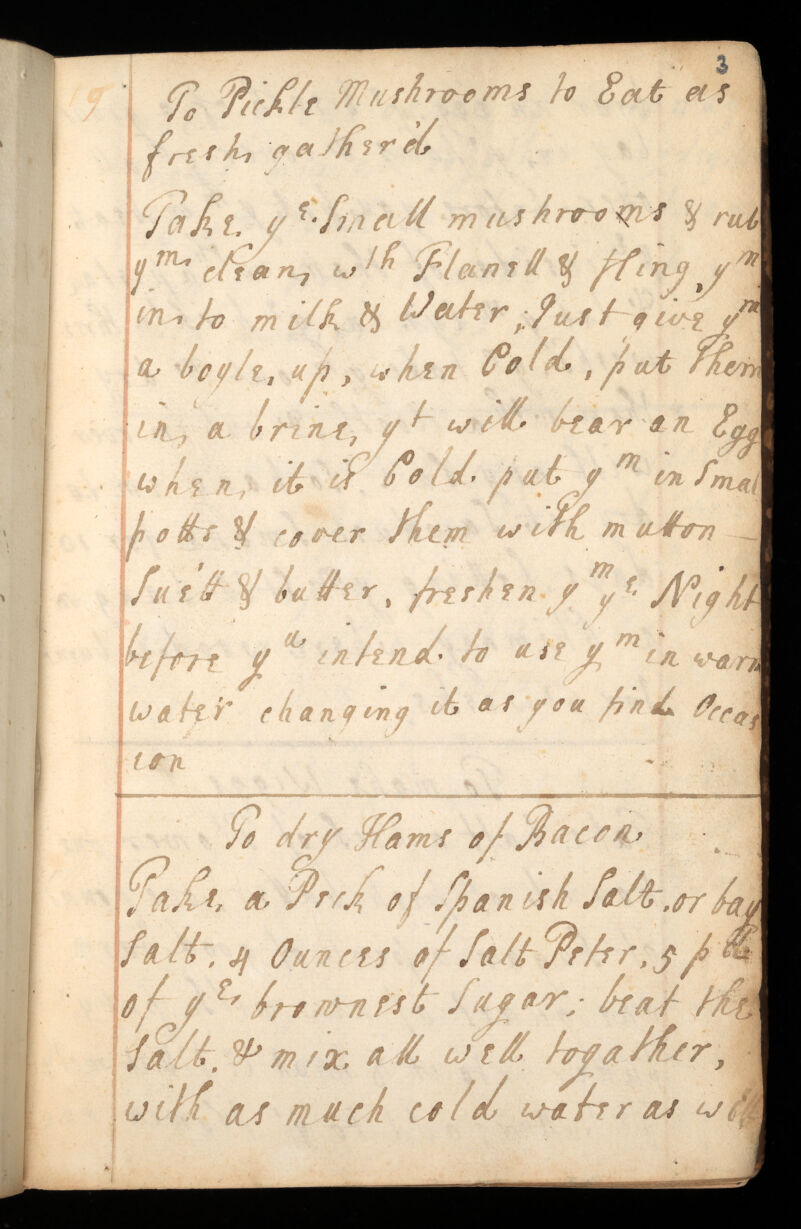 3
19
To Pickle Mushrooms to Eat as
fresh gather'd
Take ye. Small mushrooms & rub
ym clean wth Flanell & fling ym
in to milk & Water; Just give ym
a boyle, up, when Cold, put them
in a brine, yt will bear an Egg
when it is Cold. put ym in Smal
potts & cover them with mutton —
Suett & butter, freshen ym ye. Night
before yu intend to use ym in warm
water changing it as you find Occas
ion
To dry Hams of Bacon
Take a Peck of Spanish Salt, or bay
Salt. 4 Ounces of Salt Peter, 5 ptt
of ye brownest Sugar; beat the
Salt. & mix all well togather,
with as much cold water as will